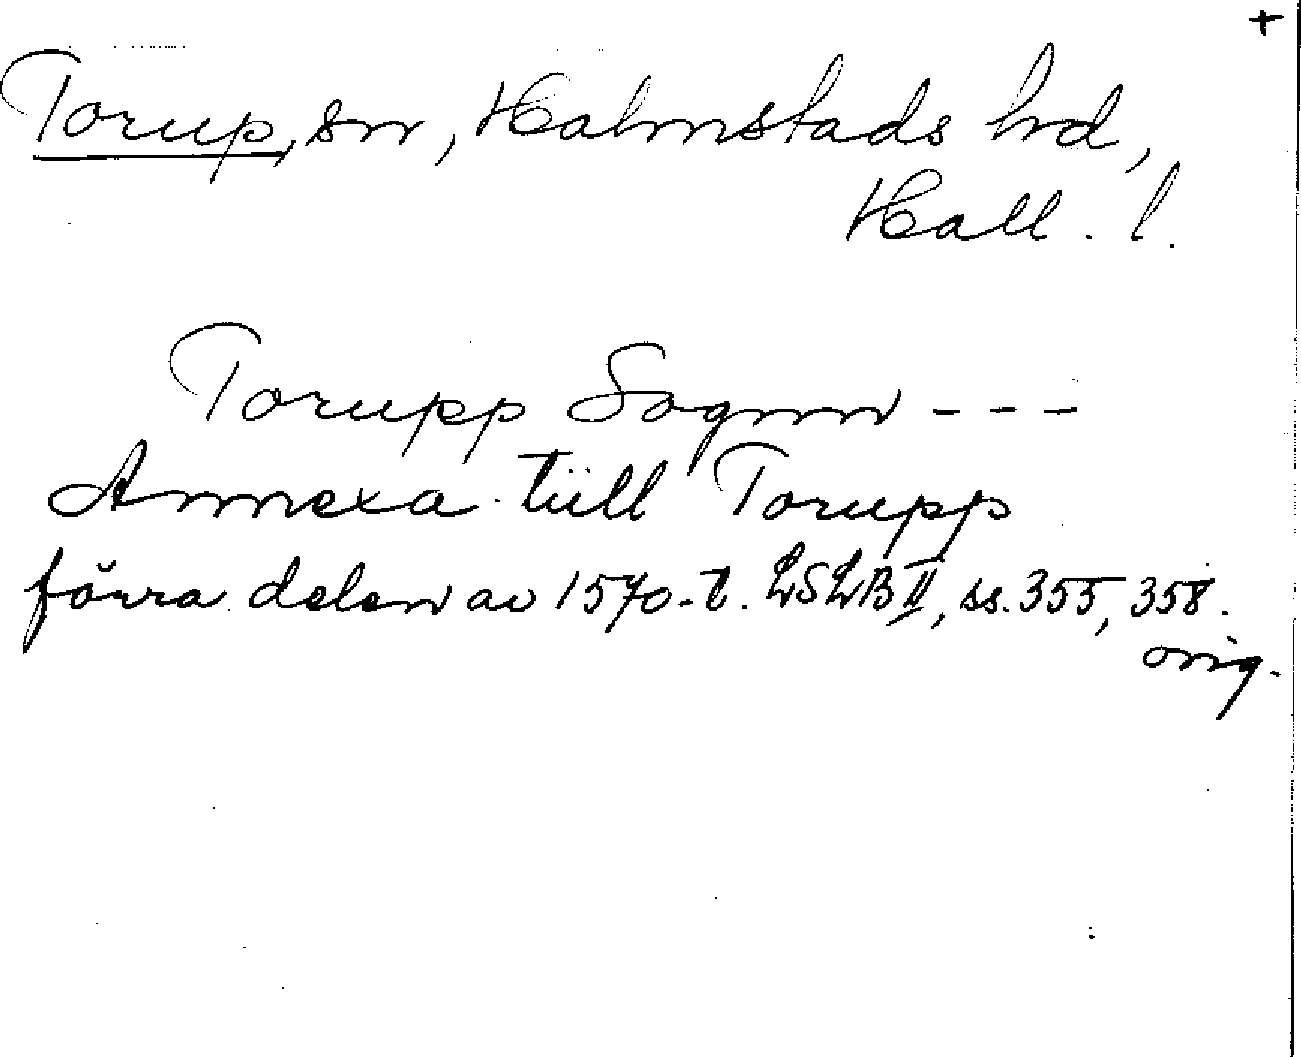 +
Torup, sn, Halmstads hd,
Hall. l.
Torupp Sognn ---
Annexa tüll Torupp
förra delen av 1570-t. LSLB II, ss. 355, 358.
orig.